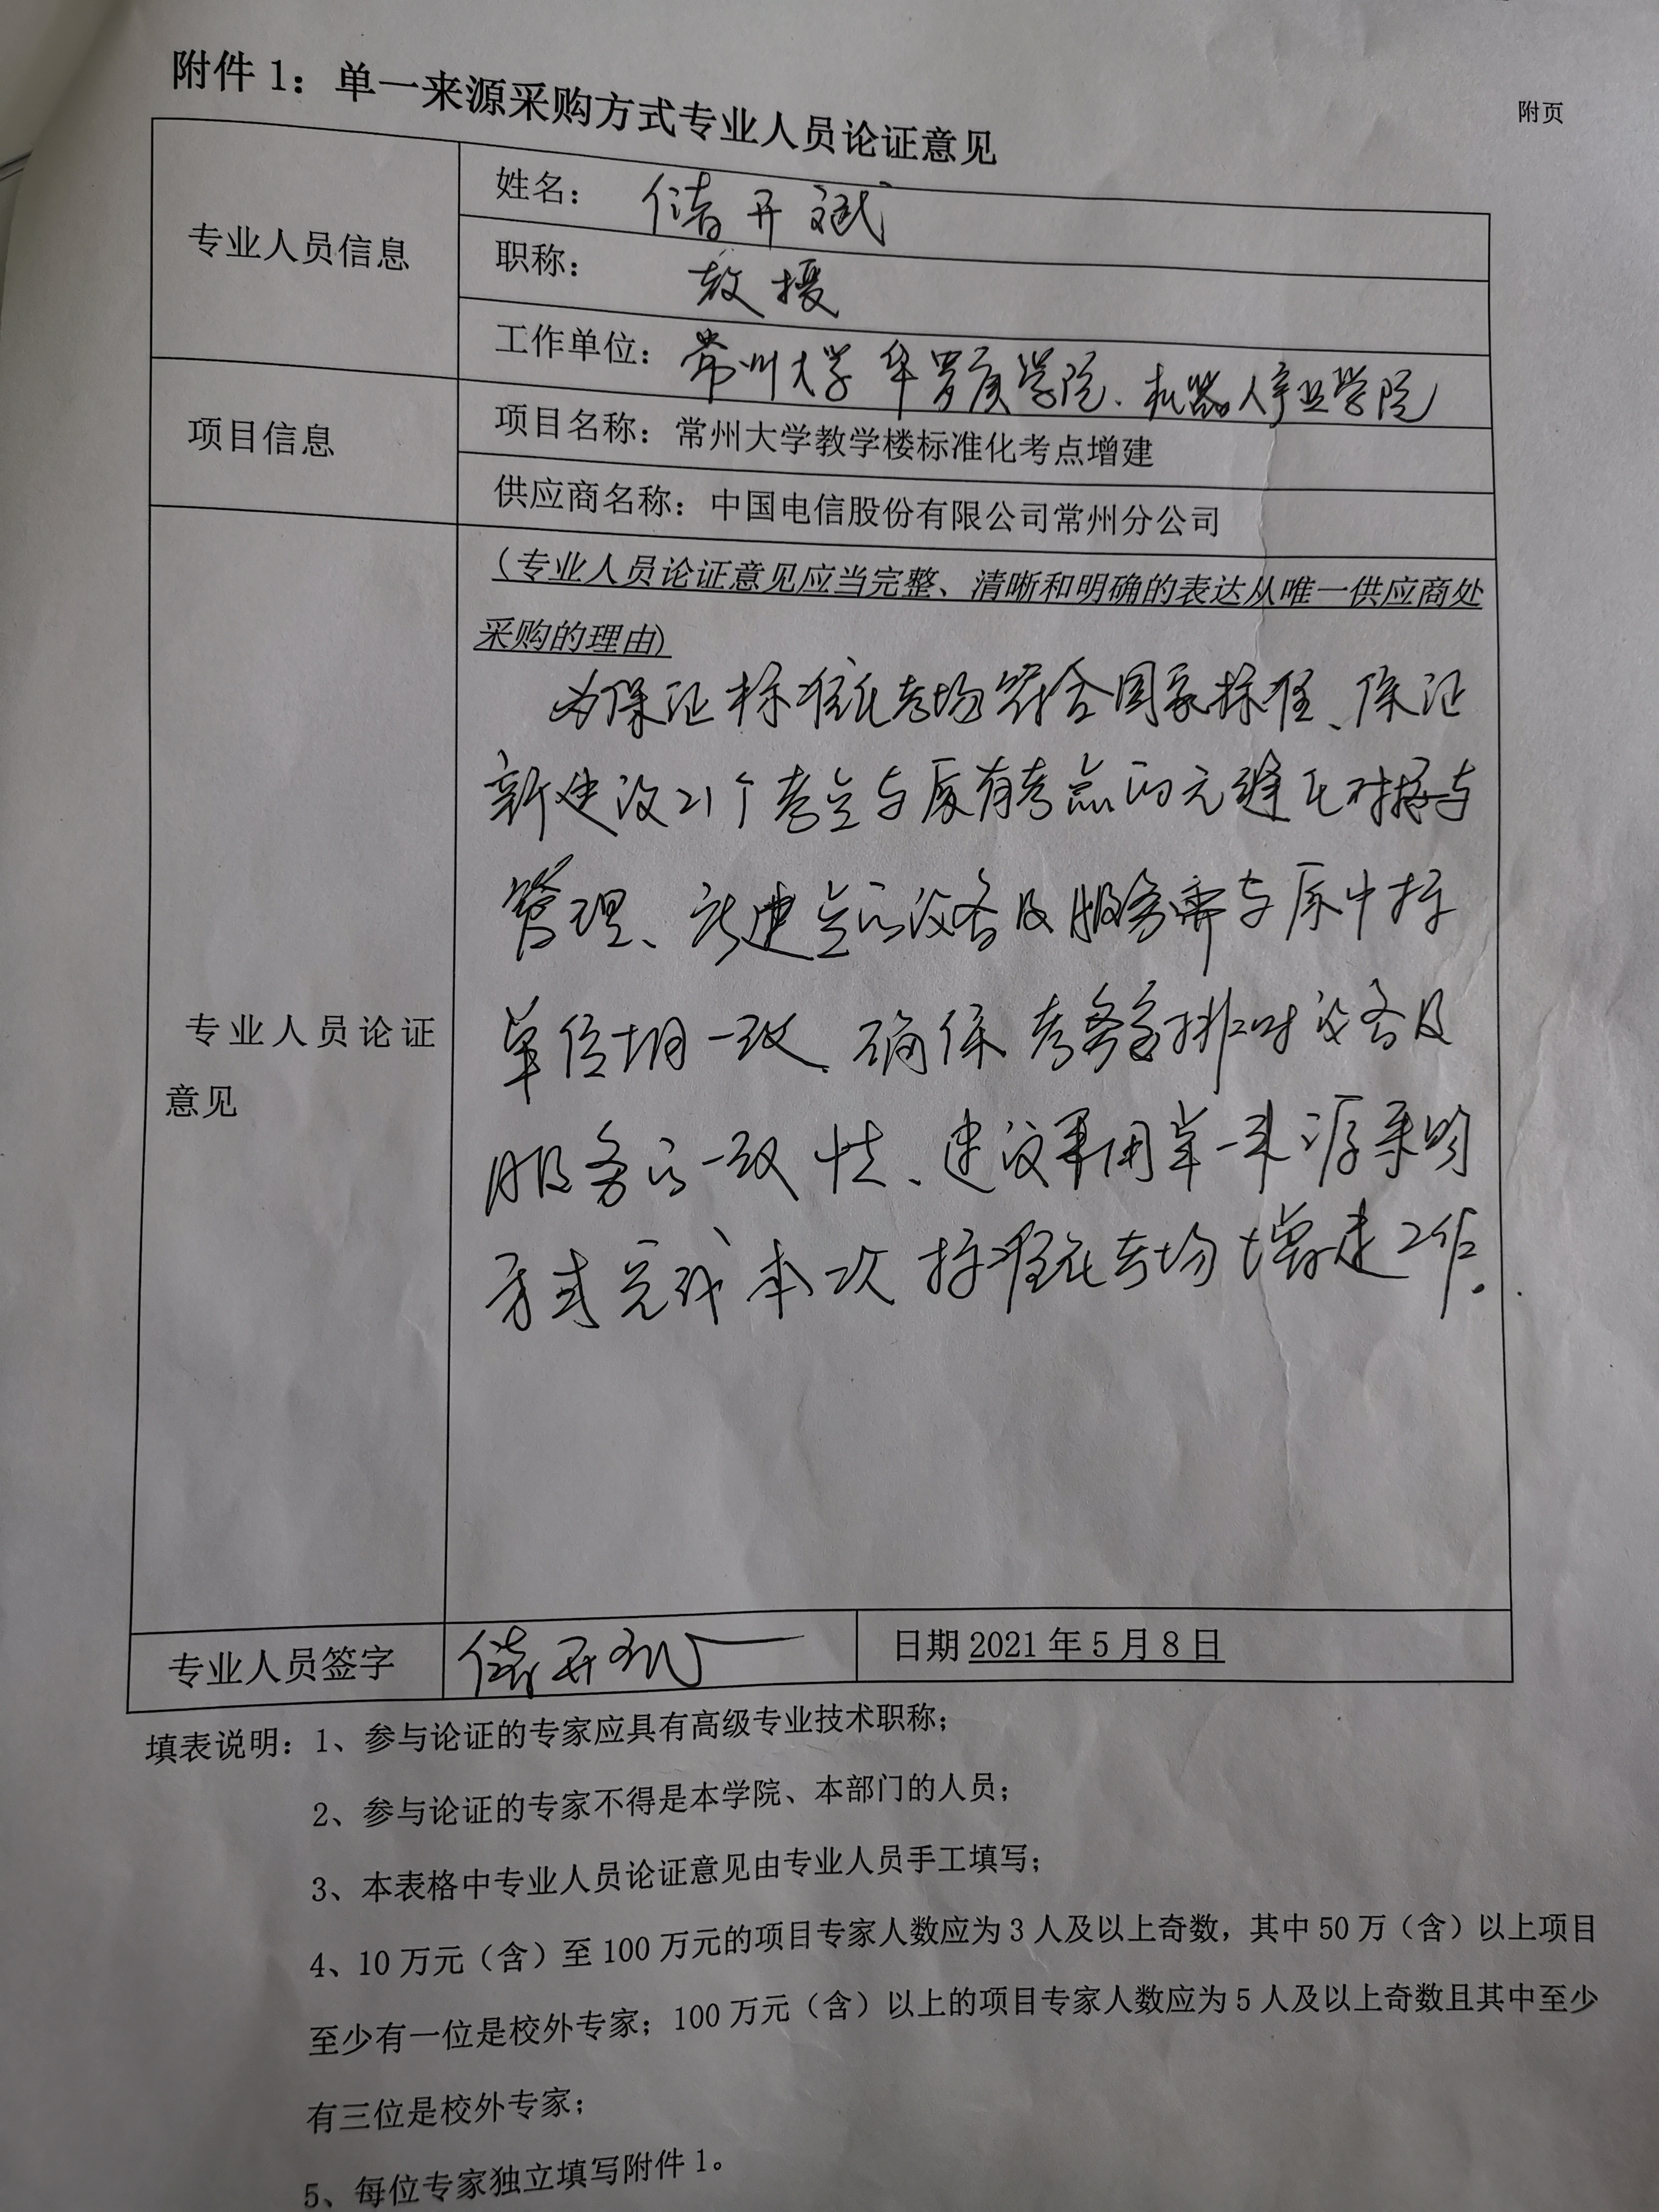 附页
附件 1：单一来源采购方式专业人员论证意见
专业人员信息
姓名：储开斌
职称：教授
工作单位：常州大学华罗庚学院、机器人产业学院
项目信息
项目名称：常州大学教学楼标准化考点增建
供应商名称：中国电信股份有限公司常州分公司
专业人员论证
意见
（专业人员论证意见应当完整、清晰和明确的表达从唯一供应商处
采购的理由）
为保证标准化考场符合国家标准、保证
新建设21个考点与原有考点的无缝化对接与
管理、新建点的设备及服务需与原中标
单位相一致、确保考务安排时设备及
服务的一致性、建议采用单一来源采购
方式完成本次标准化考场增建工作。
专业人员签字
储开斌
日期 2021 年 5 月 8 日
填表说明：1、参与论证的专家应具有高级专业技术职称；
2、参与论证的专家不得是本学院、本部门的人员；
3、本表格中专业人员论证意见由专业人员手工填写；
4、10 万元（含）至 100 万元的项目专家人数应为 3 人及以上奇数，其中 50 万（含）以上项目
至少有一位是校外专家；100 万元（含）以上的项目专家人数应为 5 人及以上奇数且其中至少
有三位是校外专家；
5、每位专家独立填写附件 1。